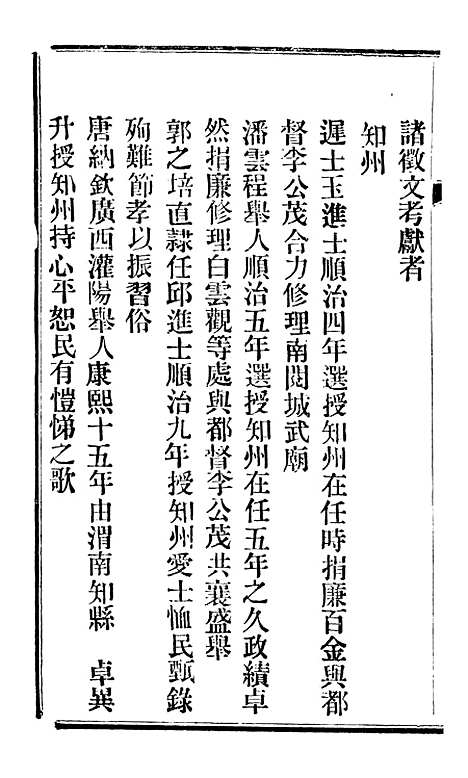 諸徵文考獻者
知州
遲士玉進士順治四年選授知州在任時捐廉百金與都
督李公茂合力修理南閱城武廟
潘雲程舉人順治五年選授知州在任五年之久政績卓
然捐廉修理白雲觀等處與都督李公茂共襄盛舉
郭之培直隸任邱進士順治九年授知州愛士恤民甄錄
殉難節孝以振習俗
唐納欽廣西灌陽舉人康熙十五年由渭南知縣 卓異
升授知州持心平恕民有愷悌之歌